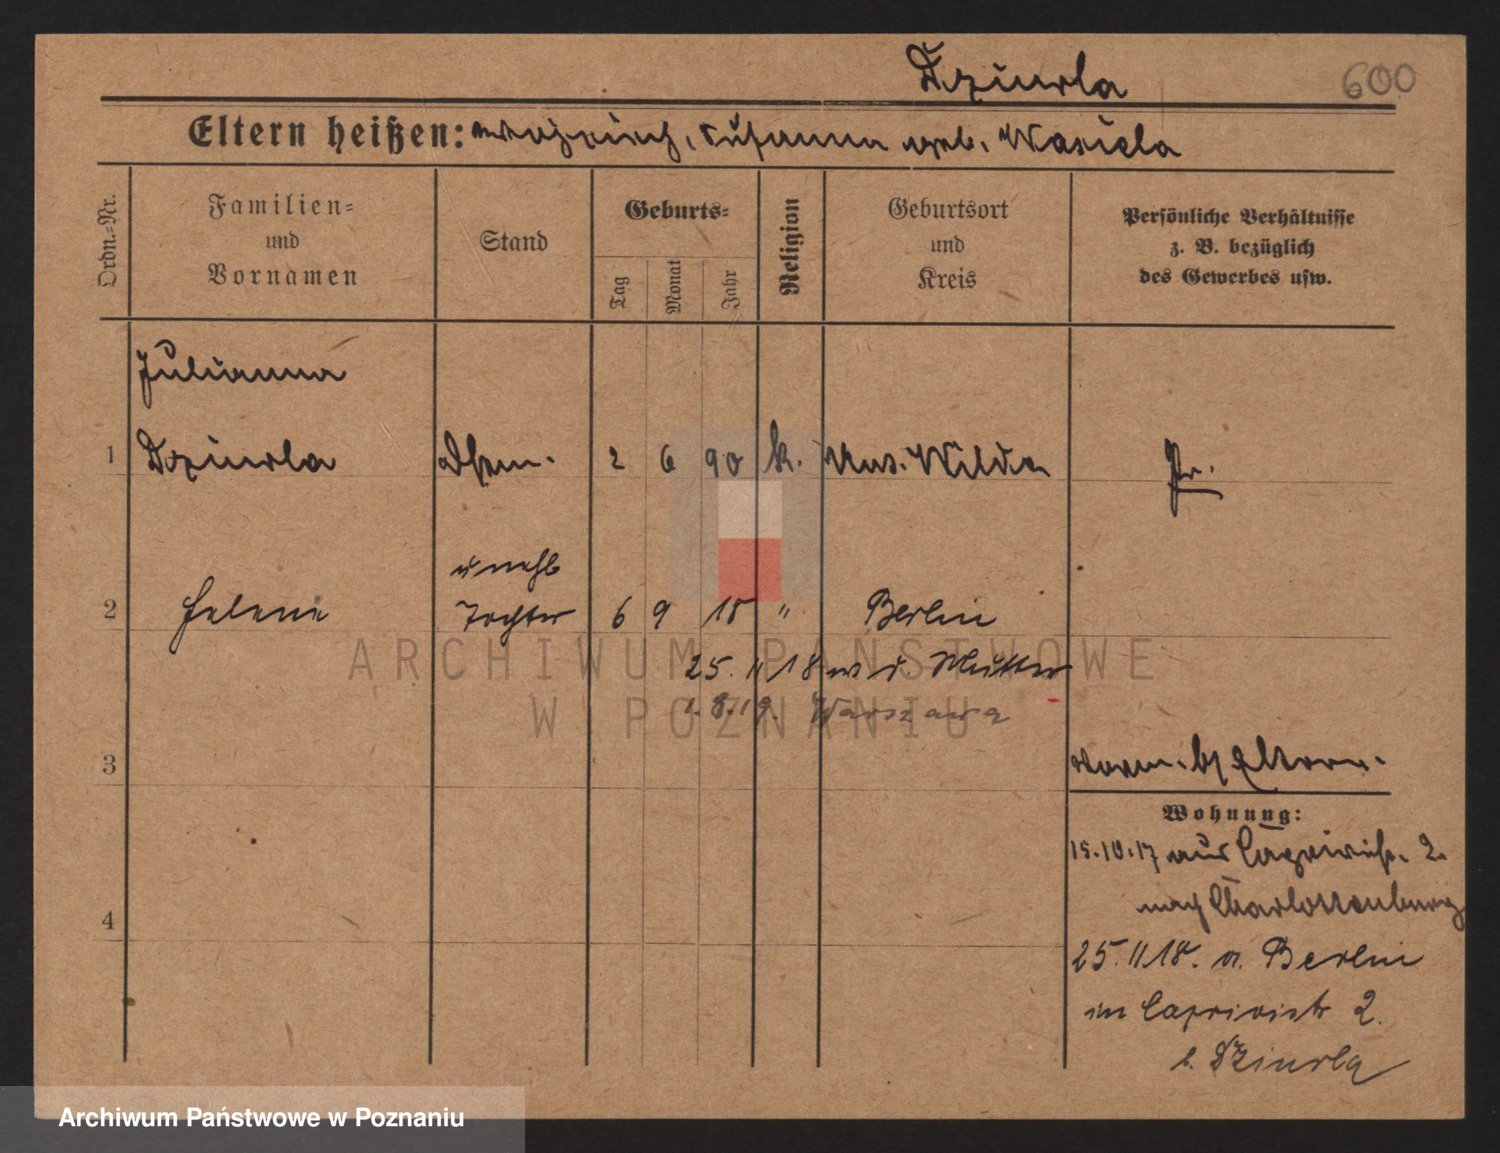 Dziurla
600
Eltern heißen: Wojciech, Susanna geb. Wasiela
Ordn.-Nr.
Familien-
und
Vornamen
Stand
Geburts-
Tag
Monat
Jahr
Religion
Geburtsort
und
Kreis
Persönliche Verhältnisse
z. B. bezüglich
des Gewerbes usw.
Julianna
1 Dziurla 2 6 90 k. Wilda Pr.
unehl
2 Helene Tochter 6 9 18 " Berlin
25. 11 18 w d. Mutter
1. 8. 19. Warszawa
3
vorm. b/ Eltern.
Wohnung:
15.10.17 aus Caprivistr. 2.
nach Charlottenburg
4
25. 11 18. v. Berlin
in Caprivistr 2.
b. Dziurla
ARCHIWUM PAŃSTWOWE
W POZNANIU
Archiwum Państwowe w Poznaniu